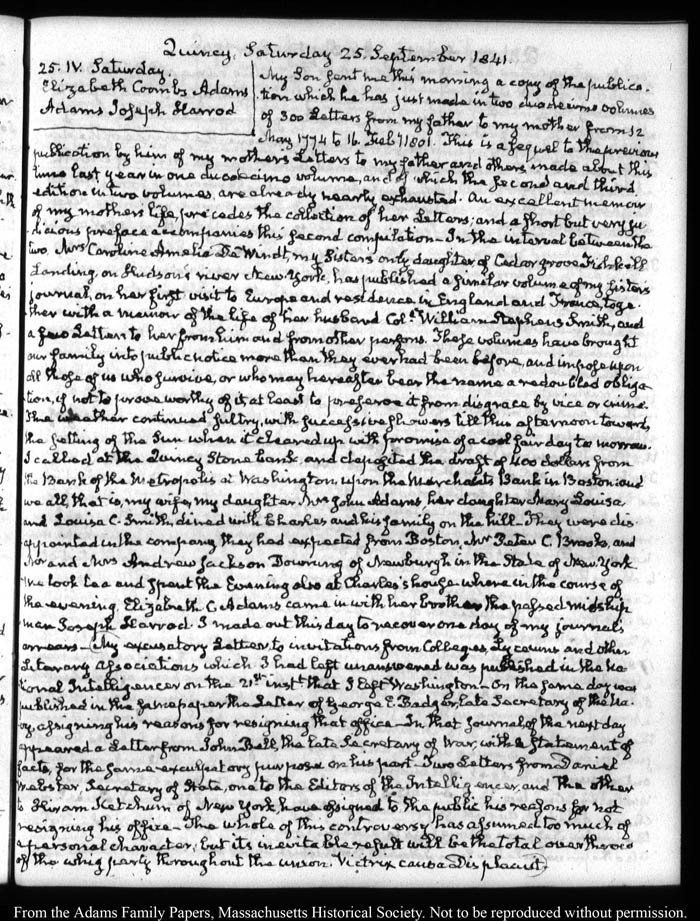 Quincy, Saturday 25. September 1841.
25. IV. Saturday.
Elizabeth Coombs Adams
Adams Joseph Harrod
My Son sent me this morning a copy of the publica-
tion which he has just made in two duodecimo volumes
of 300 Letters from my father to my mother from 12
May 1774 to 16. Feby 1801. This is a sequel to the previous
publication by him of my mother's Letters to my father and others made about this
time last year in one duodecimo volume, and of which the second and third
edition in two volumes, are already nearly exhausted. An excellent memoir
of my mother's life, precedes the collection of her Letters; and a short but very ju-
dicious preface accompanies this second compilation— In the interval between the
two, Mrs Caroline Amelia De Windt, my Sisters only daughter of Cedar grove Fishkill
Landing, on Hudson's river New York, has published a similar volume of my Sisters
journal, on her first visit to Europe and residence in England and France, toge-
ther with a memoir of the life of her husband Col. William Stephens Smith, and
a few Letters to her from him and from other persons. These volumes have brought
our family into public notice more than they ever had been before, and impose upon
all those of us who survive, or who may hereafter bear the name a redoubled obliga-
tion, if not to prove worthy of it at least to preserve it from disgrace by vice or crime.
The weather continued sultry, with successive showers till this afternoon toward,
the setting of the Sun when it cleared up with promise of a cool fair day to morrow.
I called at the Quincy Stone bank, and deposited the draft of 400 dollars from
the Bank of the Metropolis at Washington, upon the Merchants Bank in Boston; and
we all, that is, my wife, my daughter Mrs John Adams, her daughter Mary Louisa
and Louisa C. Smith, dined with Charles and his family on the hill. They were dis-
appointed in the company they had expected from Boston, Mr Peter C. Brooks, and
Mr and Mrs Andrew Jackson Downing of Newburgh in the State of New York
We took tea and spent the Evening also at Charles's house where in the course of
the evening, Elizabeth C. Adams came in with her brother the passed midship-
man Joseph Harrod. I made out this day to recover one day of my journal's
arrears— My excusatory Letter, to invitations from Colleges, Lyceums and other
Literary Associations which I had left unanswered was published in the Na-
tional Intelligencer on the 21st inst. that I left Washington— On the same day was
published in the same paper the Letter of George E. Badger, late Secretary of the Na-
vy, assigning his reasons for resigning that office— In that Journal of the next day
appeared a Letter from John Bell, the late Secretary of War, with a Statement of
facts, for the same exculpatory purpose on his part. Two Letters from Daniel
Webster, Secretary of State, one to the Editors of the Intelligencer, and the other
to Hiram Ketchum of New York, have assigned to the public his reasons for not
resigning his office— The whole of this controversy has assumed too much of
a personal character, but its inevitable result will be the total overthrow
of the whig party throughout the union. Victrix causa Dis placuit.
From the Adams Family Papers, Massachusetts Historical Society. Not to be reproduced without permission.